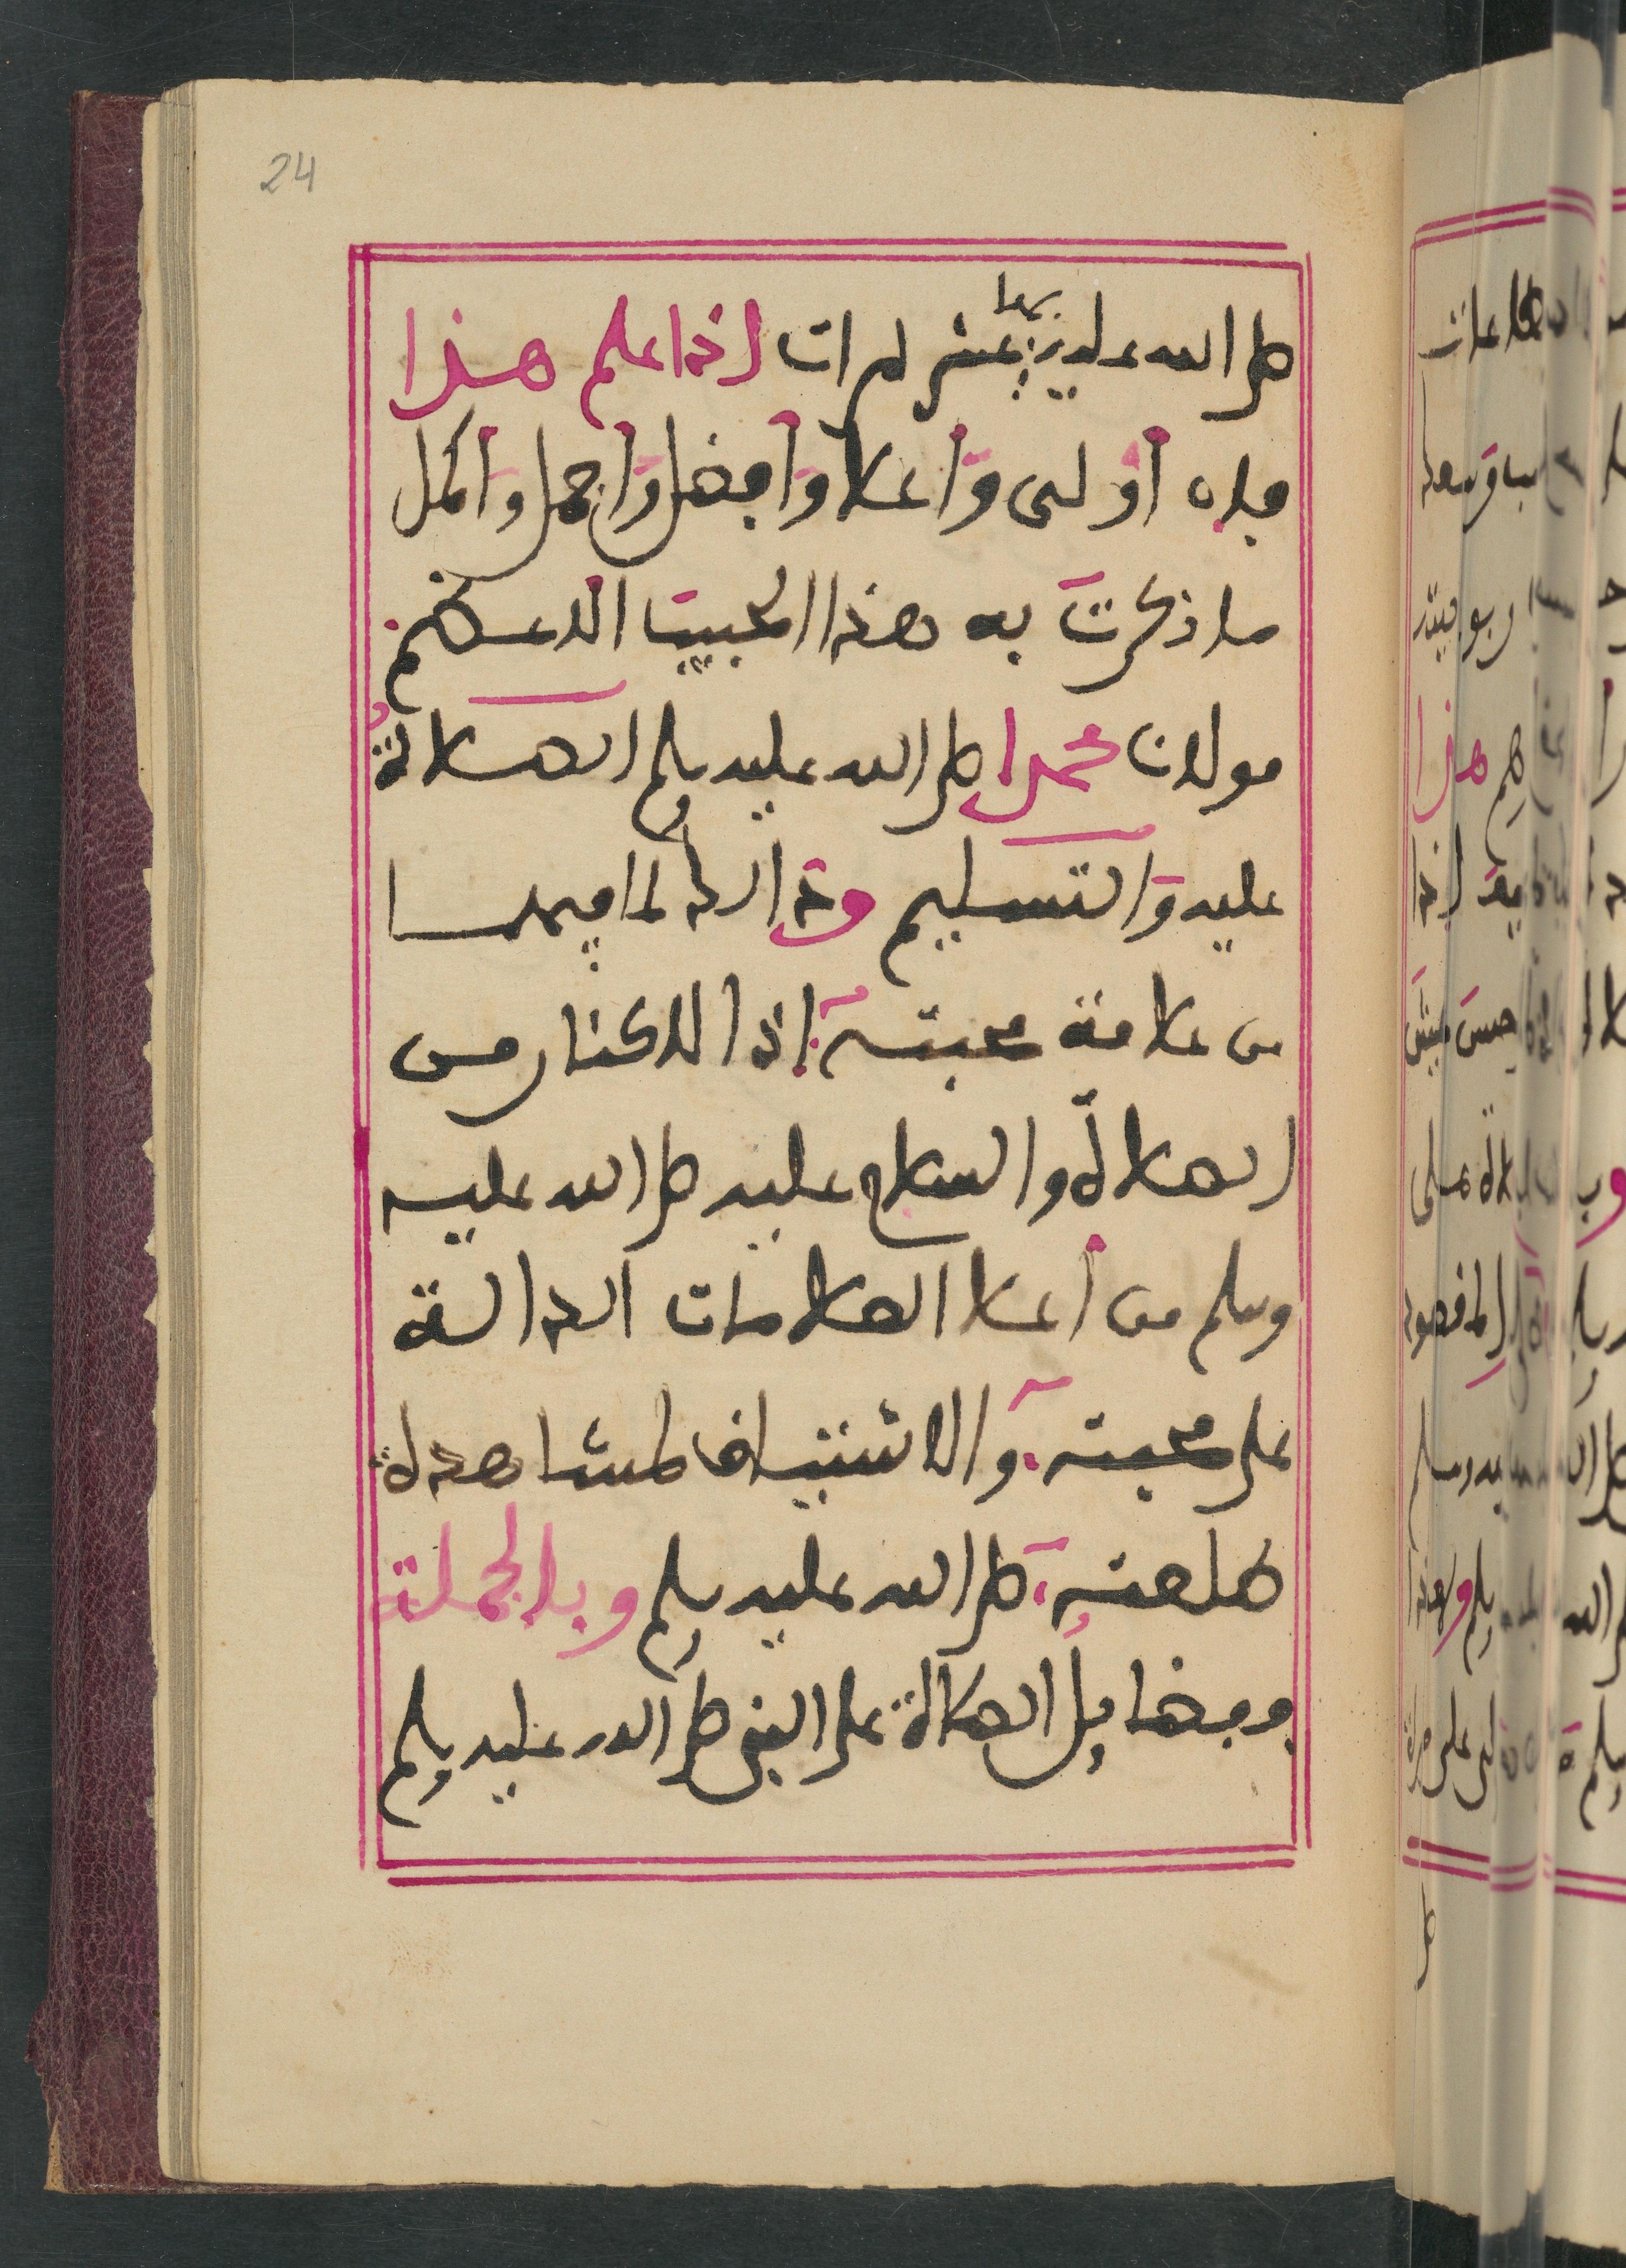 24
صلى الله عليه بها عشر مرات إذا علم هذا
فإن أولى وأعلا وأفضل وأجمل وأكمل
ما ذكرت به هذا الحبيب الاعظم
مولانا محمدا صلى الله عليه وسلم الصلاة
عليه والتسليم وذالك لما فيهما
من علامة محبته إذ الاكثار من
الصلاة والسلام عليه صلى الله عليه
وسلم من أعلا العلامات الدالة
على محبته والاشتياق لمشاهدة
طلعته صلى الله عليه وسلم وبالجملة
وفضايل الصلاة على النبي صلى الله عليه وسلم